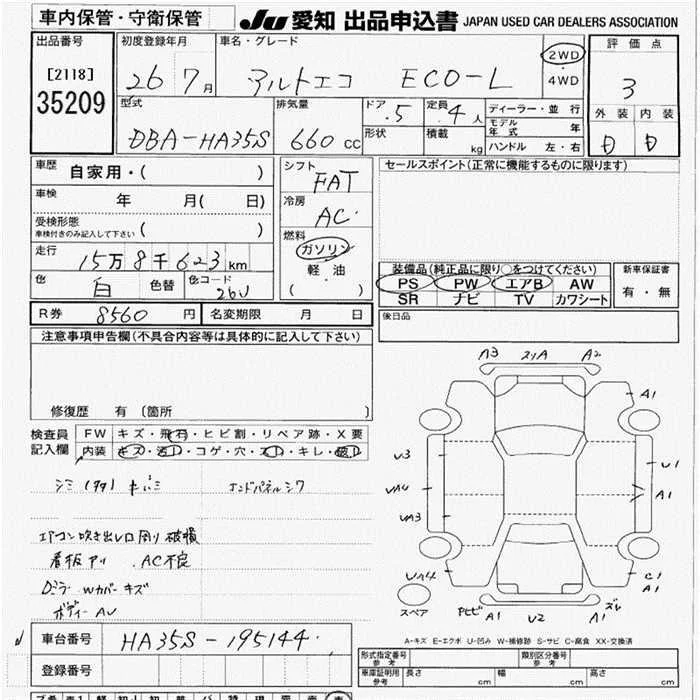 車内保管・守衛保管
JU 愛知 出品申込書 JAPAN USED CAR DEALERS ASSOCIATION
出品番号
[2118]
35209
初度登録年月
26 7月
車名・グレード
アルトエコ ECO-L
2WD
・
4WD
評価点
3
外装 内装
D D
型式
DBA-HA35S
排気量
660 cc
ドア
5
形状
定員
4人
積載
kg
ディーラー・並行
モデル年式 年
ハンドル 左・右
車歴 自家用・( )
車検 年 月( 日)
受検形態
車検付きのみ記入して下さい ( )
走行 15万8千623km
色 白 色替 色コード 26U
シフト
FAT
冷房
AC
燃料
ガソリン
軽・油
( )
セールスポイント(正常に機能するものに限ります)
装備品(純正品に限り○をつけてください)
PS PW エアB AW
SR ナビ TV カワシート
新車保証書
有・無
R券 8560円 名変期限 月 日
後日品
注意事項申告欄(不具合内容等は具体的に記入して下さい)
修復歴 有〔箇所 〕
検査員
記入欄
FW キズ・飛石・ヒビ割・リペア跡・X要
内装
シミ
エンドパネルシワ
エアコン吹き出し口周り破損
看板アリ AC不良
Dミラー Wカバーキズ
A3 A2
A1
U3 U1
UA4 A1
UA3
UA4 C1
A1
スペア
A1 U2 A1
A-キズ E-エクボ U-凹み W-補修跡 S-サビ C-腐食 XX-交換済
車台番号 HA35S-195144
登録番号
形式指定番号
参考
類別区分番号
参考
車庫証明用
参考
長さ cm 幅 cm 高さ cm